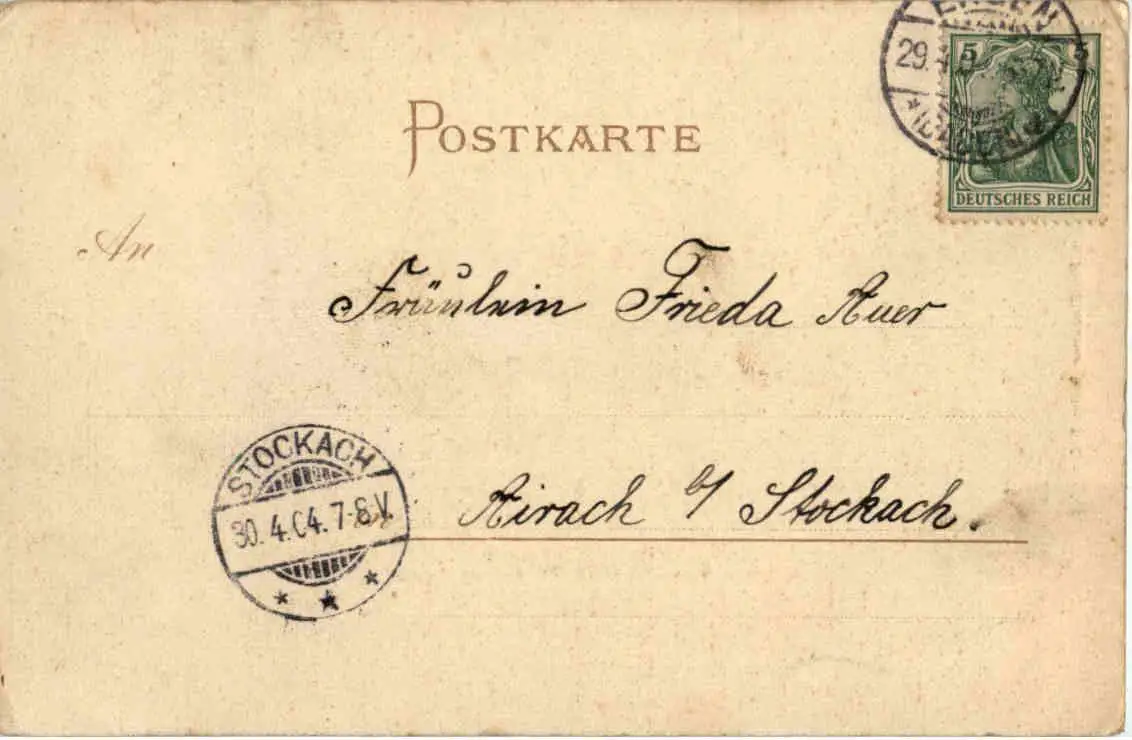 5 5
29.
DEUTSCHES REICH
POSTKARTE
An
Fräulein Frieda Auer
STOCKACH
30. 4.04. 7-8.V.
Airach b/ Stockach.